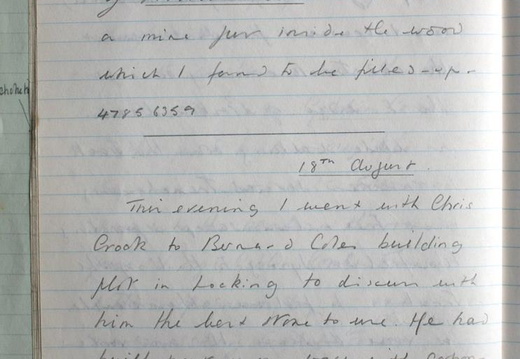 a mine just inside the wood
which I found to be filled - up -
4785 6359
18TH August.
This evening I went with Chris
Crook to Bernard Coles building
plot in Hocking to discuss with
him the best stone to use. He had
built